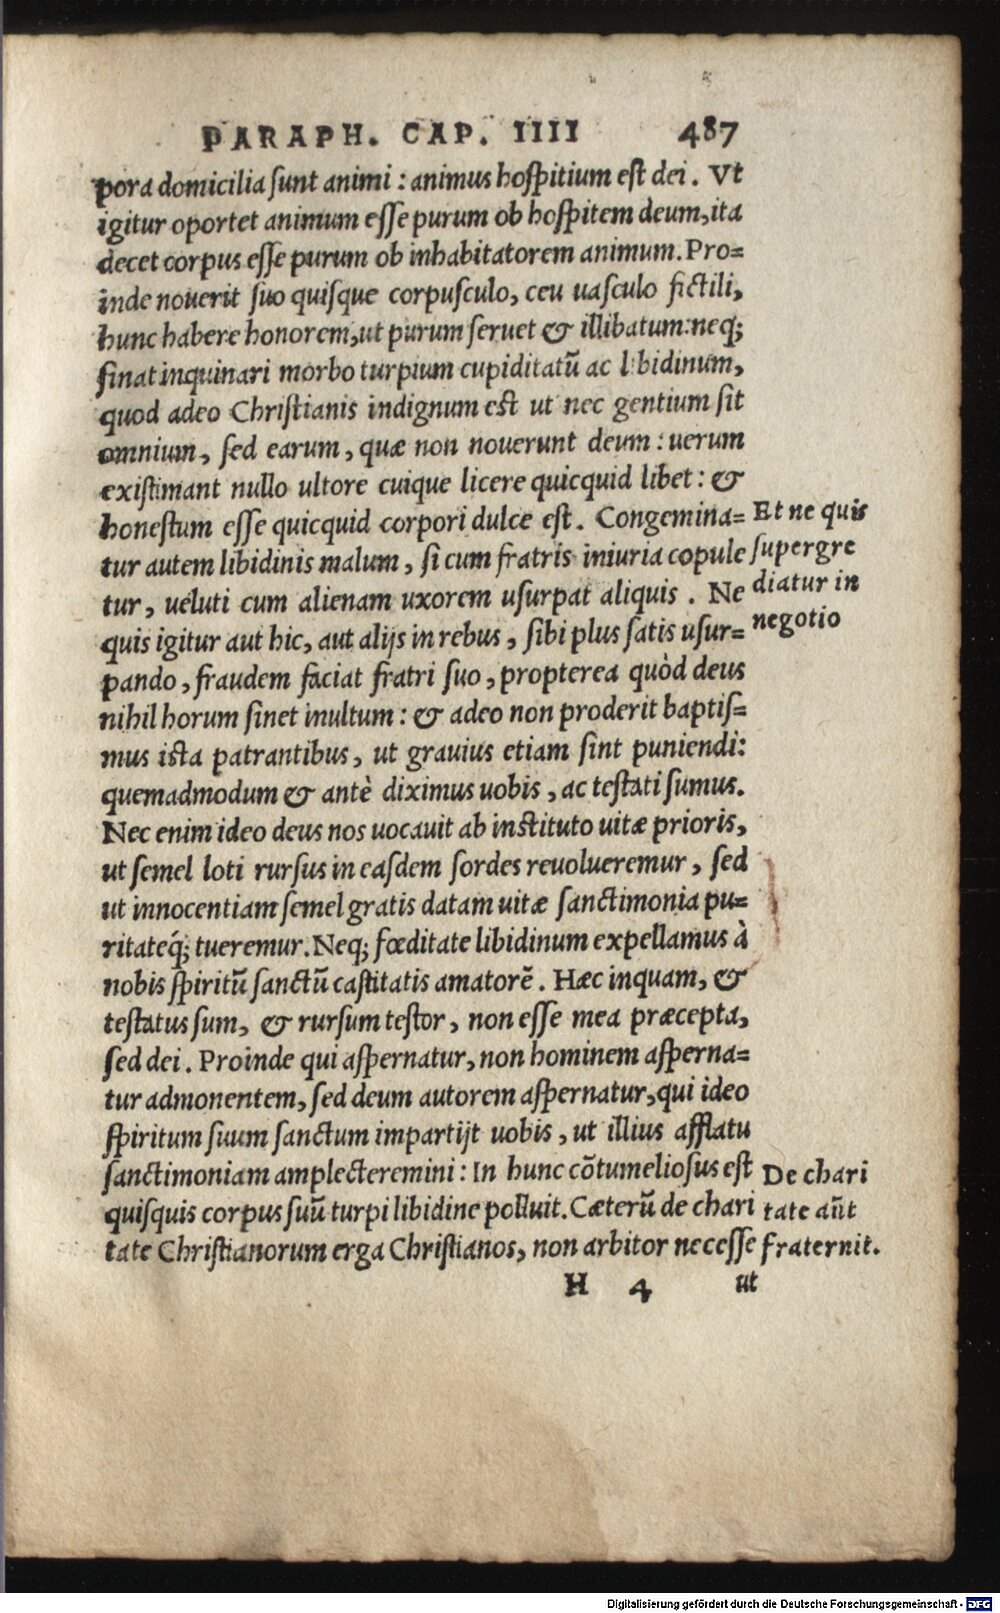 PARAPH. CAP. IIII 487
pora domicilia sunt animi : animus hospitium est dei . Vt
igitur oportet animum esse purum ob hospitem deum, ita
decet corpus esse purum ob inhabitatorem animum. Pro=
inde nouerit suo quisque corpusculo, ceu uasculo fictili,
hunc habere honorem, ut purum seruet & illibatum: neq;
sinat inquinari morbo turpium cupiditatũ ac libidinum,
quod adeo Christianis indignum est ut nec gentium sit
omnium, sed earum, quæ non nouerunt deum : uerum
existimant nullo ultore cuique licere quicquid libet : &
honestum esse quicquid corpori dulce est. Congemina=
tur autem libidinis malum, si cum fratris iniuria copule
tur, ueluti cum alienam uxorem usurpat aliquis . Ne
quis igitur aut hic, aut alijs in rebus, sibi plus satis usur=
pando, fraudem faciat fratri suo, propterea quòd deus
nihil horum sinet inultum : & adeo non proderit baptis=
mus ista patrantibus, ut grauius etiam sint puniendi:
quemadmodum & antè diximus uobis, ac testati sumus.
Nec enim ideo deus nos uocauit ab instituto uitæ prioris,
ut semel loti rursus in easdem sordes reuolueremur, sed
ut innocentiam semel gratis datam uitæ sanctimonia pu=
ritateq́; tueremur. Neq; fœditate libidinum expellamus à
nobis spiritũ sanctũ castitatis amatorẽ. Hæc inquam, &
testatus sum, & rursum testor, non esse mea præcepta,
sed dei. Proinde qui aspernatur, non hominem asperna=
tur admonentem, sed deum autorem aspernatur, qui ideo
spiritum suum sanctum impartijt uobis, ut illius afflatu
sanctimoniam amplecteremini : In hunc cõtumeliosus est
quisquis corpus suũ turpi libidine polluit. Cæterũ de chari
tate Christianorum erga Christianos, non arbitor necesse
H 4 ut
Et ne quis
supergre
diatur in
negotio
De chari
tate aũt
fraternit.
Digitalisierung gefördert durch die Deutsche Forschungsgemeinschaft - DFG